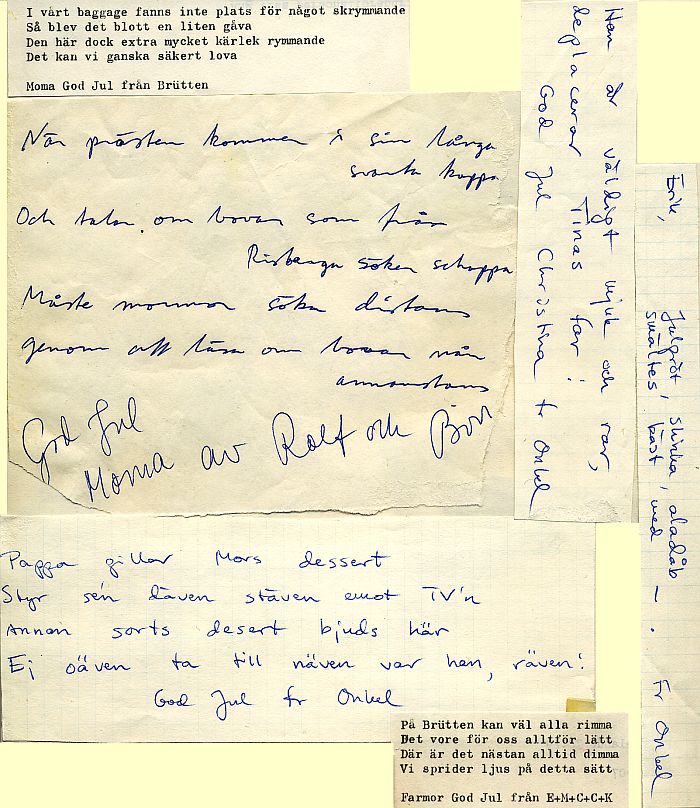 I vårt baggage fanns inte plats för något skrymmande
Så blev det blott en liten gåva
Den här dock extra mycket kärlek rymmande
Det kan vi ganska säkert lova
Moma God Jul från Brütten
När prästen kommer i sin långa
svarta kappa
Och talar om bovar som från
Risberga söker schappa
Måste mormor söka distans
genom att läsa om bovar någon
annanstans
God Jul
Moma av Rolf och
Han är väldigt mjuk och rar,
deplacerar Tinas far!
God Jul Christina fr Onkel
Erik,
Julgröt, skinka, aladåb
smältes bäst med — .
Fr Onkel
Pappa gillar Mors dessert
Styr se'n däven stäven emot TV'n
Annan sorts desert bjuds här
Ej oäven ta till näven var han, räven!
God Jul fr Onkel
På Brütten kan väl alla rimma
Det vore för oss alltför lätt
Där är det nästan alltid dimma
Vi sprider ljus på detta sätt
Farmor God Jul från E+M+C+C+K